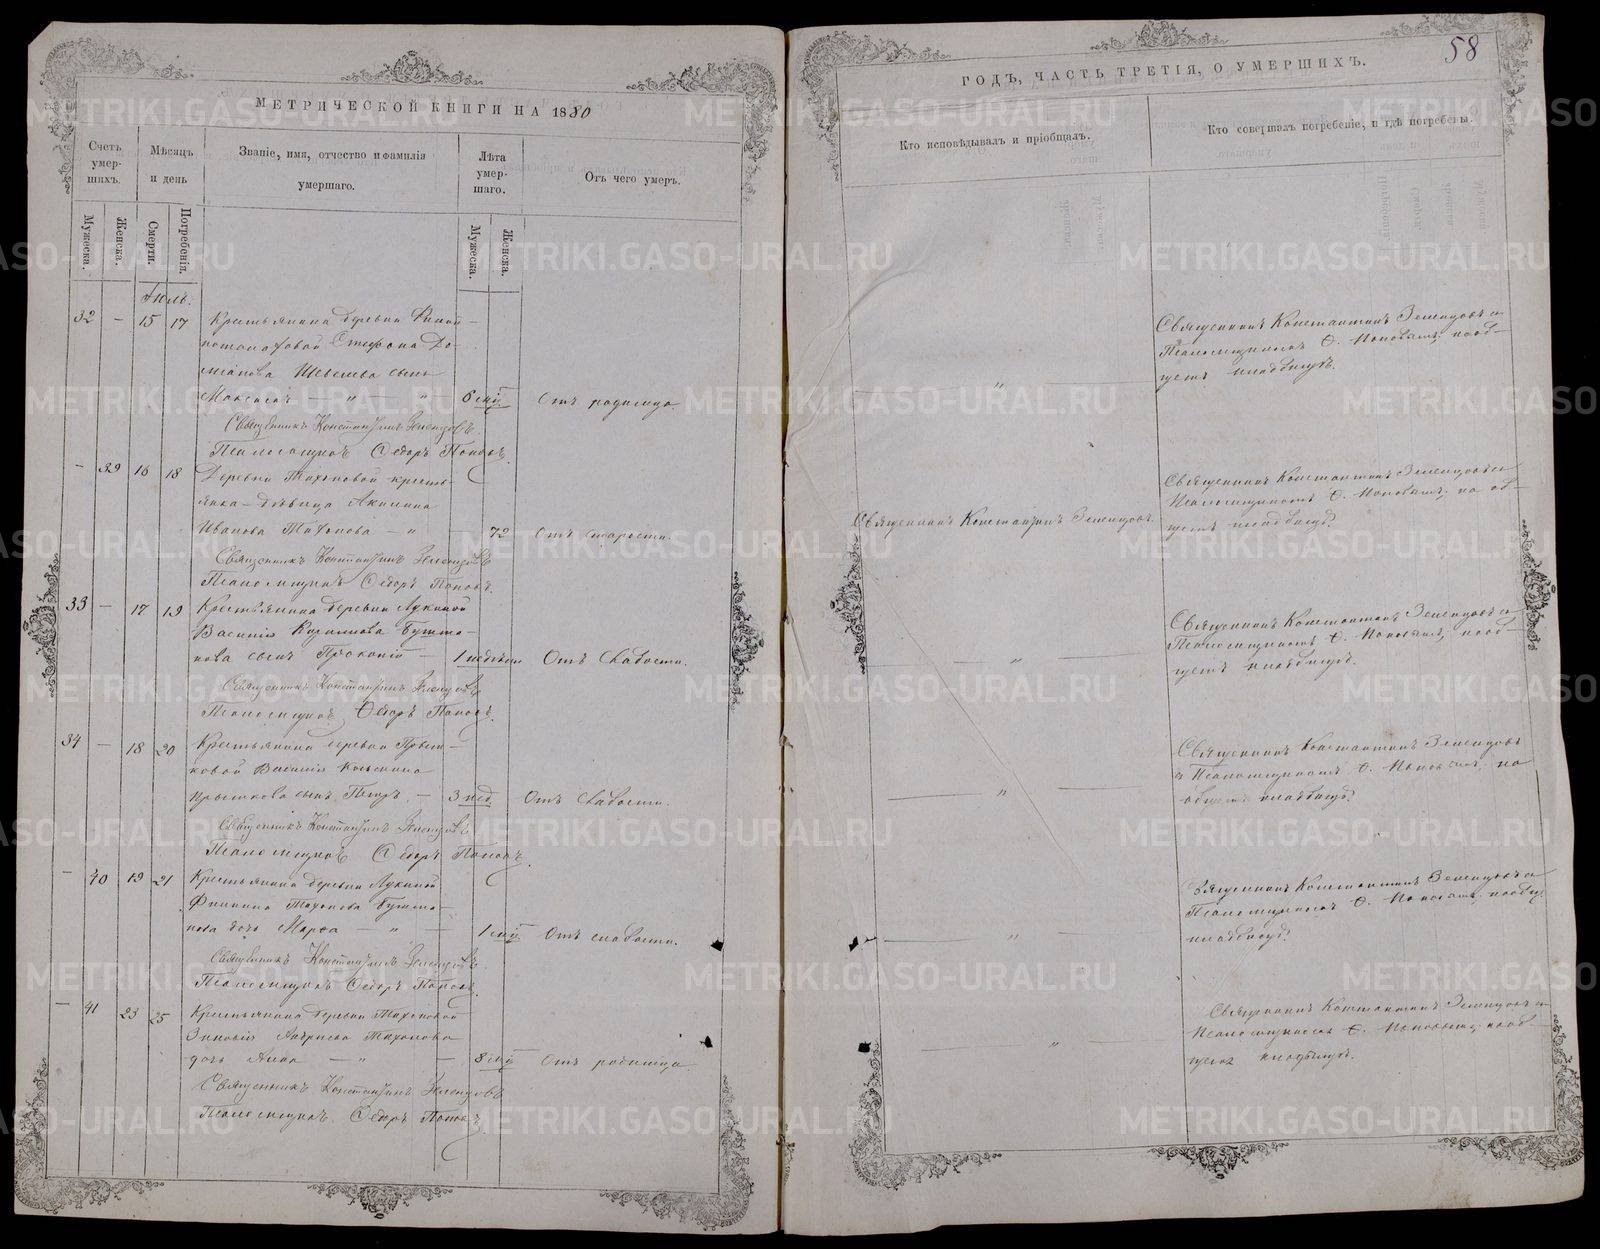 МЕТРИЧЕСКОЙ КНИГИ НА 1880
Счетъ умер-шихъ.
Мѣсяцъ и день
Званіе, имя, отчество и фамилія умершаго.
Лѣта умер-шаго.
Отъ чего умеръ.
Мужеска.
Женска.
Смерти.
Погребенія.
Мужеска.
Женска.
Іюль.
32 — 15 17 Крестьянина деревни
Стефана До-
сынъ
Максимъ — " — " — 6 мѣс. Отъ родимца.
Священникъ Константинъ Зеленцовъ.
Псаломщикъ Ѳедоръ Поповъ.
— 39 16 18 Деревни Тихоновой кресть-
янка - дѣвица Акилина
Иванова Тихонова — " — 72 Отъ старости.
Священникъ Константинъ Зеленцовъ
Псаломщикъ Ѳедоръ Поповъ.
33 — 17 19 Крестьянина деревни Лукиной
Василія
нова сынъ Прокопій — 1 недѣли Отъ слабости.
Священникъ Константинъ Зеленцовъ
Псаломщикъ Ѳедоръ Поповъ.
34 — 18 20 Крестьянина деревни
ковой Василія
сынъ Петръ — 3 нед. Отъ слабости.
Священникъ Константинъ Зеленцовъ
Псаломщикъ Ѳедоръ Поповъ.
— 40 19 21 Крестьянина деревни Лукиной
Филиппа Тихонова
нова дочь Марѳа — " — 1 мѣс. Отъ слабости.
Священникъ Константинъ Зеленцовъ
Псаломщикъ Ѳедоръ Поповъ.
— 41 23 25 Крестьянина деревни Тихоновой
Зиновія Андреева Тихонова
дочь Анна — " — 8 мѣс. Отъ родимца.
Священникъ Константинъ Зеленцовъ
Псаломщикъ Ѳедоръ Поповъ.
58
ГОДЪ, ЧАСТЬ ТРЕТІЯ, О УМЕРШИХЪ.
Кто исповѣдывалъ и пріобщалъ.
Кто совершалъ погребеніе, и гдѣ погребены.
Священникъ Константинъ Зеленцовъ съ
Псаломщикомъ Ѳ. Поповымъ, на об-
щемъ кладбищѣ.
Священникъ Константинъ Зеленцовъ.
Священникъ Константинъ Зеленцовъ съ
Псаломщикомъ Ѳ. Поповымъ, на об-
щемъ кладбищѣ.
Священникъ Константинъ Зеленцовъ съ
Псаломщикомъ Ѳ. Поповымъ, на об-
щемъ кладбищѣ.
Священникъ Константинъ Зеленцовъ
съ Псаломщикомъ Ѳ. Поповымъ, на
общемъ кладбищѣ.
Священникъ Константинъ Зеленцовъ съ
Псаломщикомъ Ѳ. Поповымъ, на общ.
кладбищѣ.
Священникъ Константинъ Зеленцовъ съ
Псаломщикомъ Ѳ. Поповымъ, на об-
щемъ кладбищѣ.
METRIKI.GASO-URAL.RU